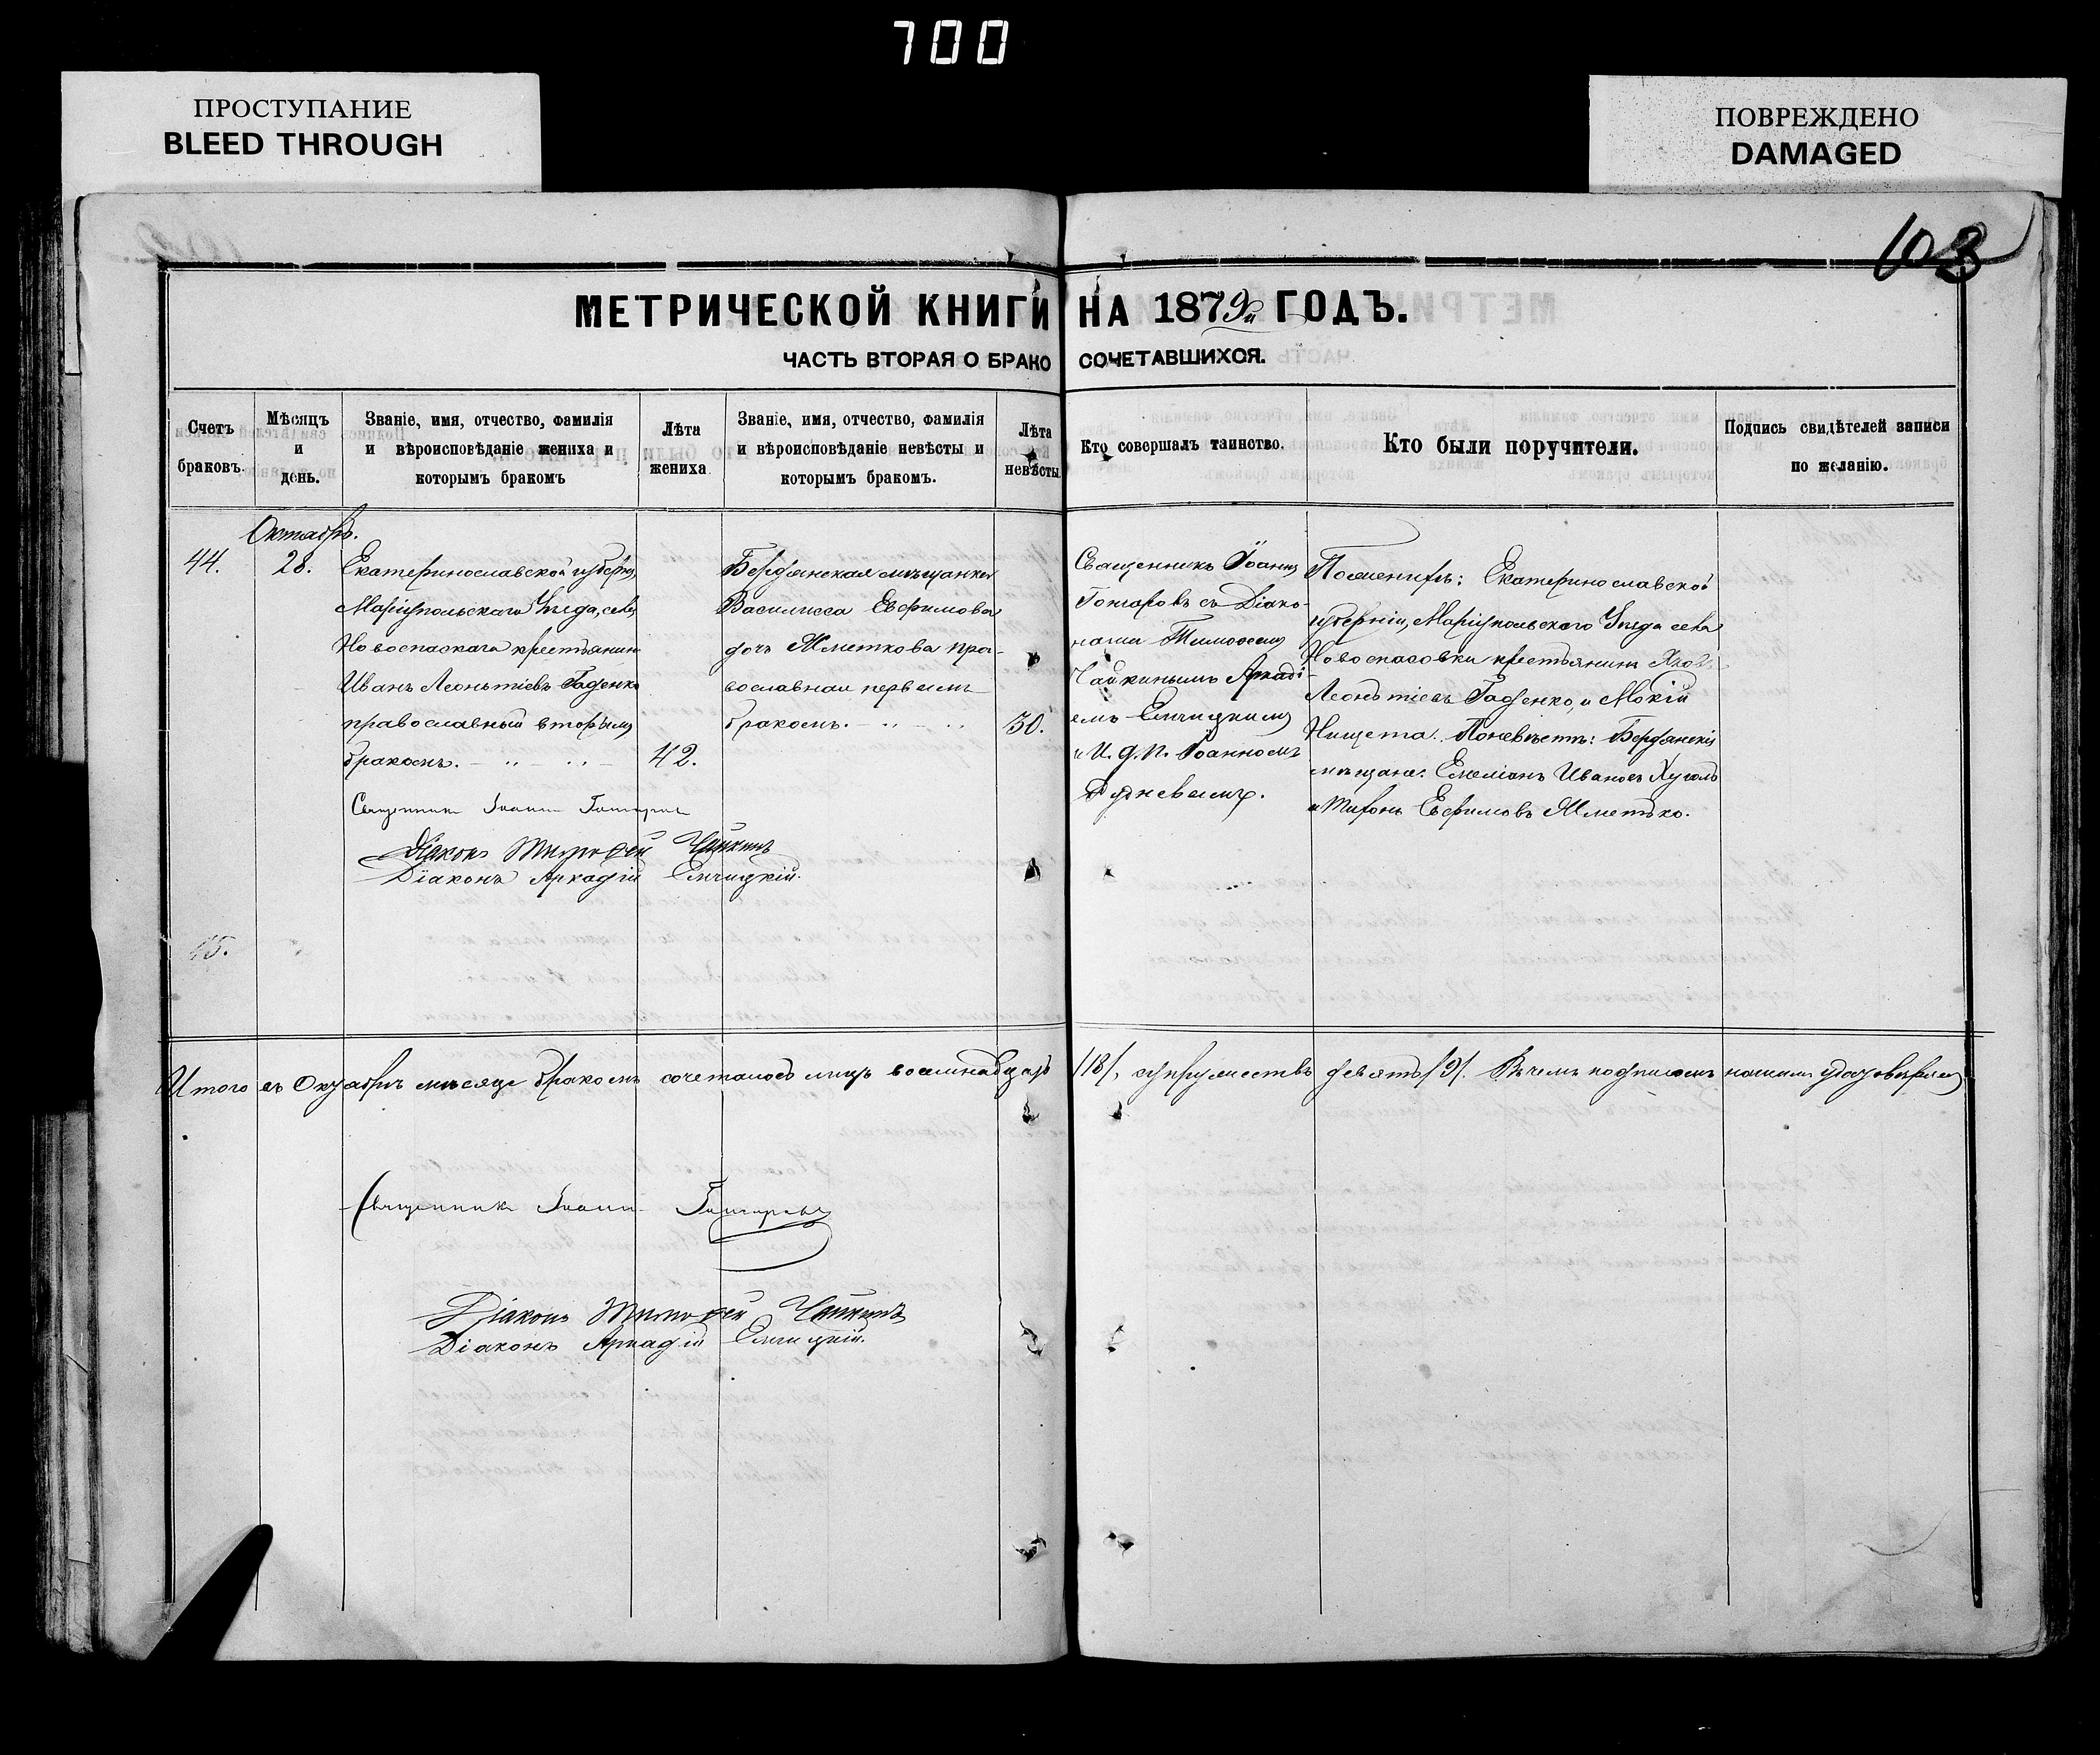 700
ПРОСТУПАНИЕ
BLEED THROUGH
ПОВРЕЖДЕНО
DAMAGED
103
МЕТРИЧЕСКОЙ КНИГИ НА 1879й ГОДЪ.
ЧАСТЬ ВТОРАЯ О БРАКО СОЧЕТАВШИХСЯ.
Счетъ браковъ.
Мѣсяцъ и день.
Званіе, имя, отчество, фамилія
и вѣроисповѣданіе жениха и
которымъ бракомъ
Лѣта жениха
Званіе, имя, отчество, фамилія
и вѣроисповѣданіе невѣсты и
которымъ бракомъ.
Лѣта невѣсты
Кто совершалъ таинство.
Кто были поручители.
Подпись свидѣтелей записи
по желанію.
Октябрь.
44.
28.
Екатеринославской губерніи,
Маріупольскаго Уѣзда, села
Новоспаскаго крестьянинъ
Иванъ Леонтіевъ Гаденко
православный вторымъ
бракомъ.
42.
Бердянская мѣщанка
Василисса Евфимова
дочь Яметкова пра-
вославная первымъ
бракомъ.
30.
Священникъ Іоаннъ
Гончаровъ съ Діако-
нами Тимоѳеемъ
Чайкинымъ Аркаді-
емъ Емчицкимъ
и И. д. п. Іоанномъ
По женихѣ: Екатеринославской
губерніи, Маріупольскаго Уѣзда села
Новоспасовки крестьянинъ
Леонтіевъ Гаденко, и Мокій
Нищета. По невѣстѣ: Бердянскія
мѣщане: Емеліанъ Ивановъ
и Евфимовъ
Священникъ Іоаннъ Гончаровъ
Діаконъ Тимоѳей Чайкинъ
Діаконъ Аркадій Емчицкій.
45.
Итого въ Октябрѣ мѣсяцѣ бракомъ сочеталось лицъ восемнадцать /18/, супружествъ девять /9/. Въ чемъ подписомъ нашимъ удостовѣряемъ
Священникъ Іоаннъ Гончаровъ
Діаконъ Тимоѳей Чайкинъ
Діаконъ Аркадій Емчицкій.